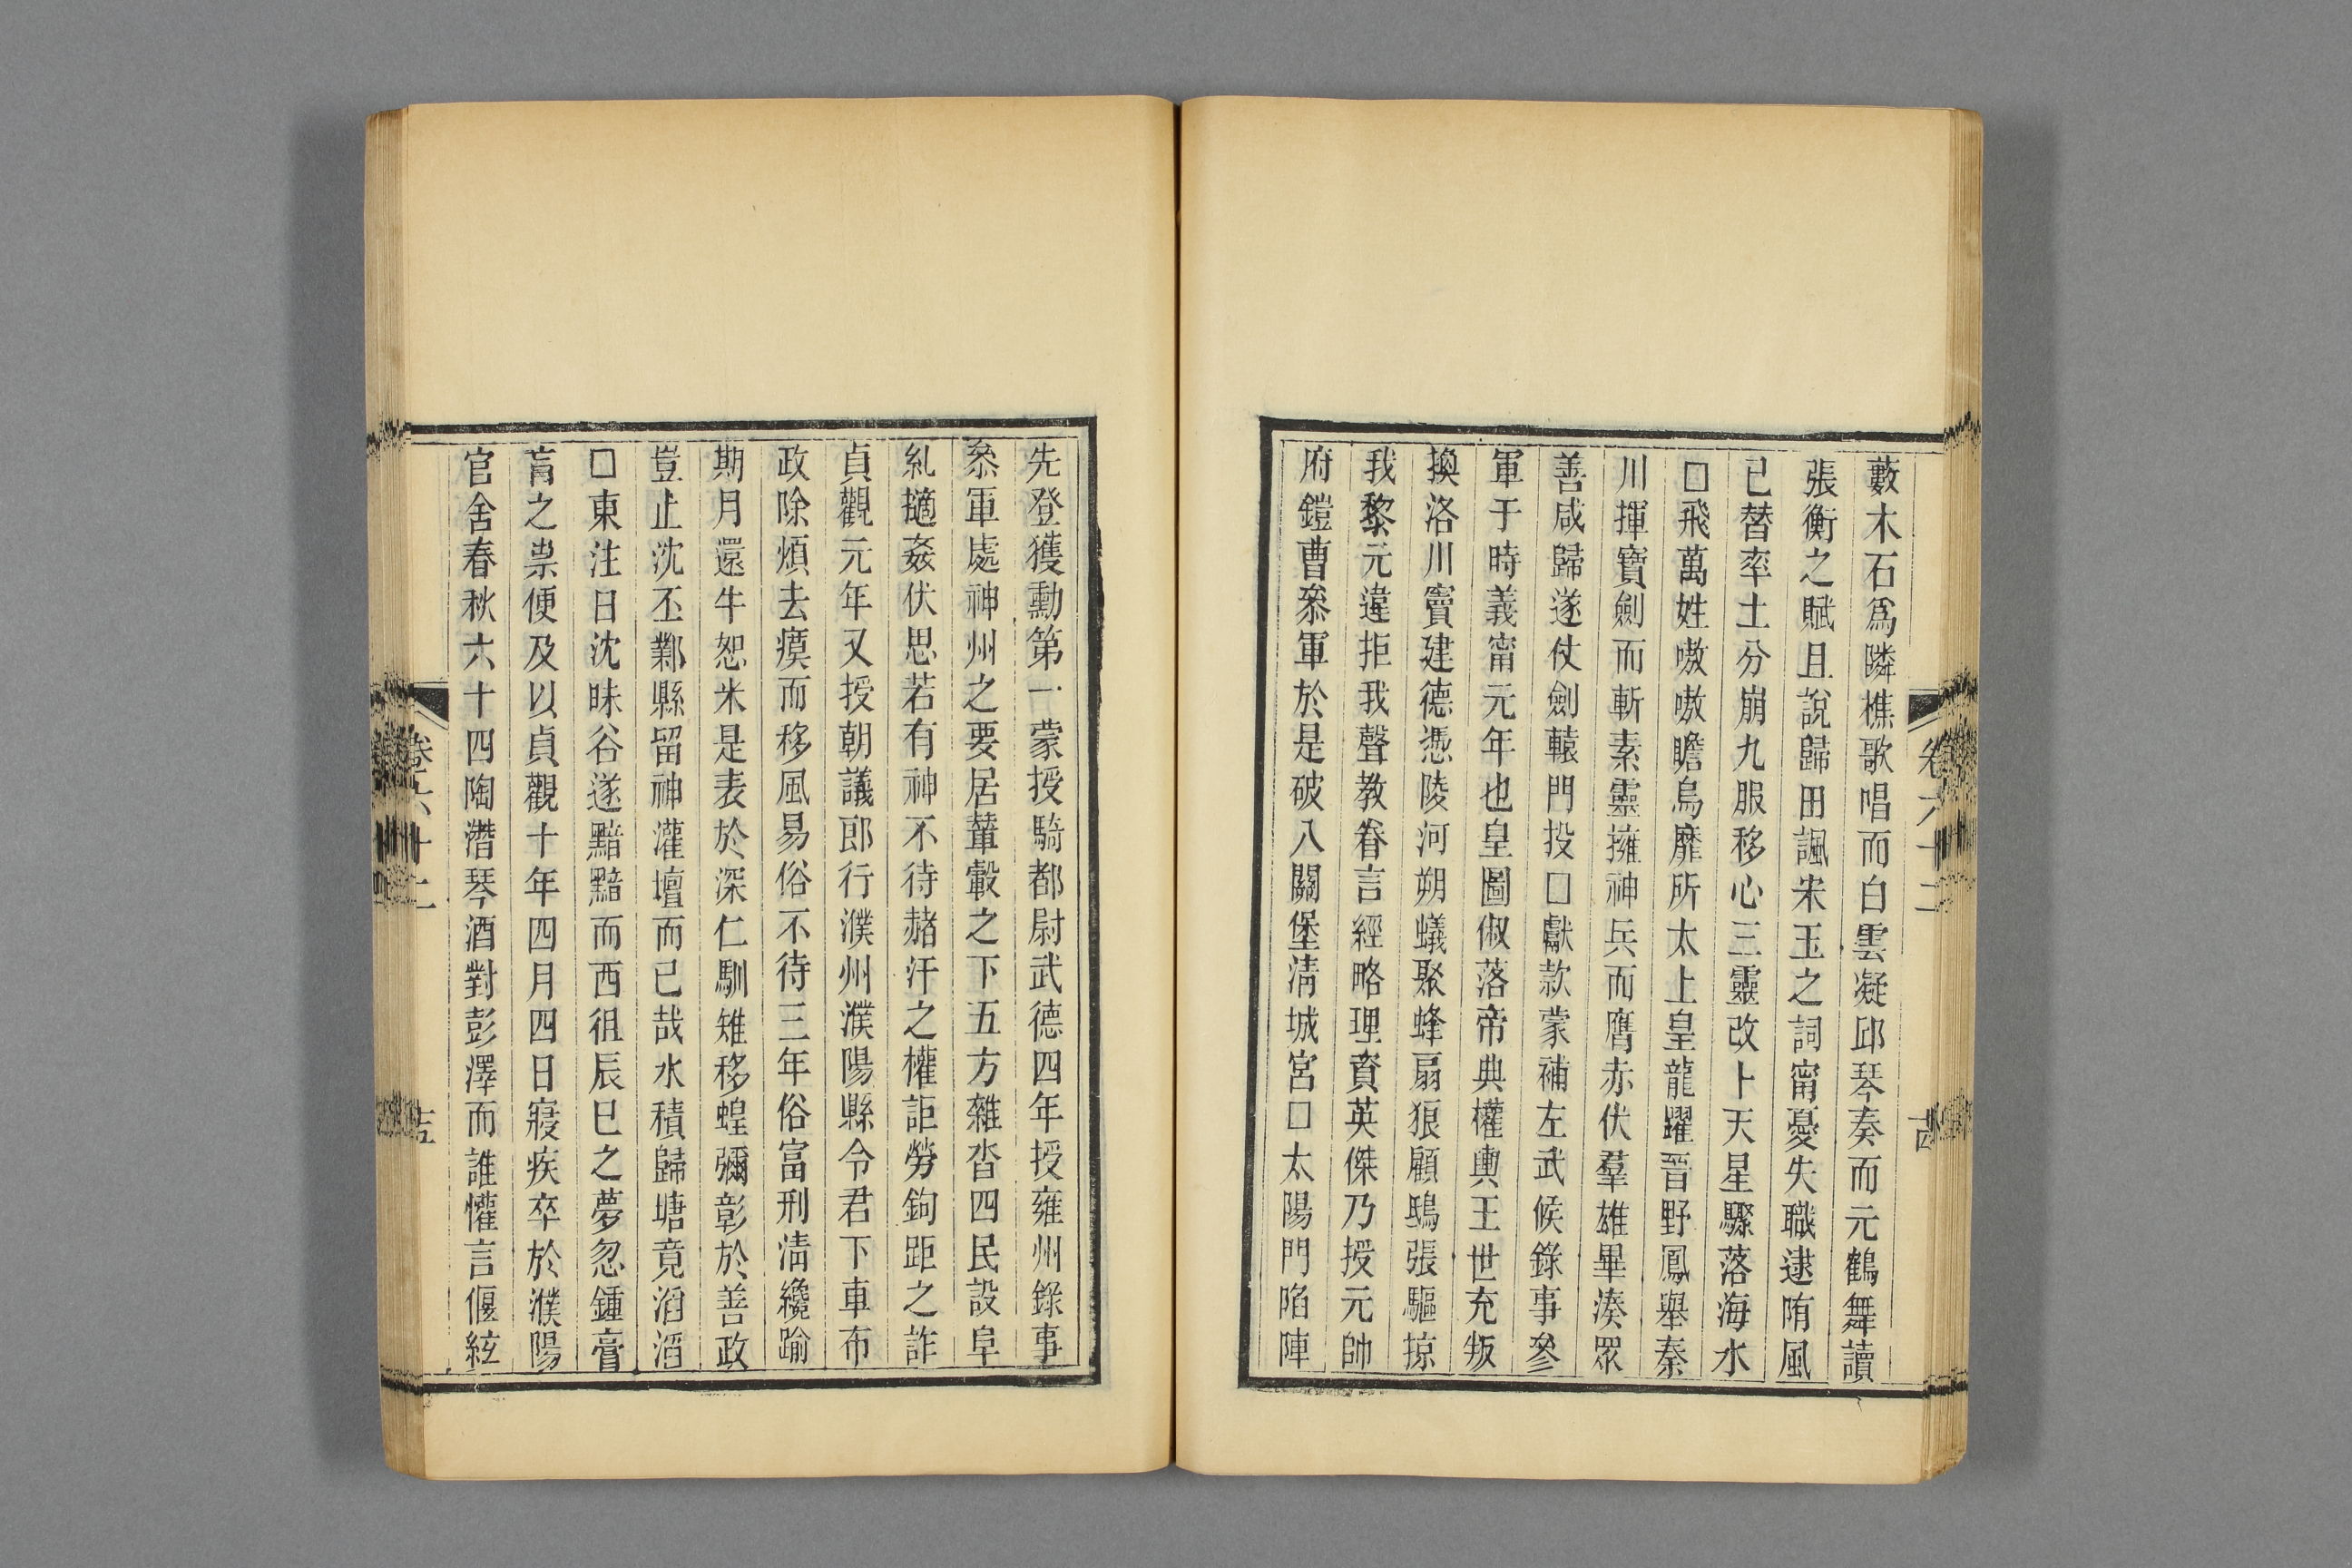 藪木石爲隣樵歌唱而白雲凝邱琴奏而元鶴舞讀
張衡之賦且說歸田諷宋玉之詞甯憂失職逮隋風
已替率土分崩九服移心三靈改卜天星驟落海水
□飛萬姓嗷嗷瞻烏靡所太上皇龍躍晉野鳳舉秦
川揮寶劍而斬素靈擁神兵而膺赤伏羣雄畢湊眾
善咸歸遂仗劍轅門投□獻款蒙補左武候錄事參
軍于時義甯元年也皇圖俶落帝典權輿王世充叛
換洛川竇建德憑陵河朔蟻聚蜂扇狼顧鴟張驅掠
我黎元違拒我聲教眷言經略理資英傑乃授元帥
府鎧曹叅軍於是破八關堡清城宮□太陽門陷陣
卷六十二
古
先登獲勳第一蒙授騎都尉武德四年授雍州錄事
叅軍處神州之要居輦轂之下五方雜沓四民設阜
糺擿姦伏思若有神不待赭汗之權詎勞鉤距之詐
貞觀元年又授朝議郎行濮州濮陽縣令君下車布
政除煩去瘼而移風易俗不待三年俗富刑清纔踰
期月還牛恕米是表於深仁馴雉移蝗彌彰於善政
豈止沈丕鄴縣留神灌壇而已哉水積歸塘竟滔滔
□東注日沈昧谷遂黯黯而西徂辰巳之夢忽鍾膏
肓之祟便及以貞觀十年四月四日寢疾卒於濮陽
官舍春秋六十四陶潛琴酒對彭澤而誰懽言偃絃
卷六十二